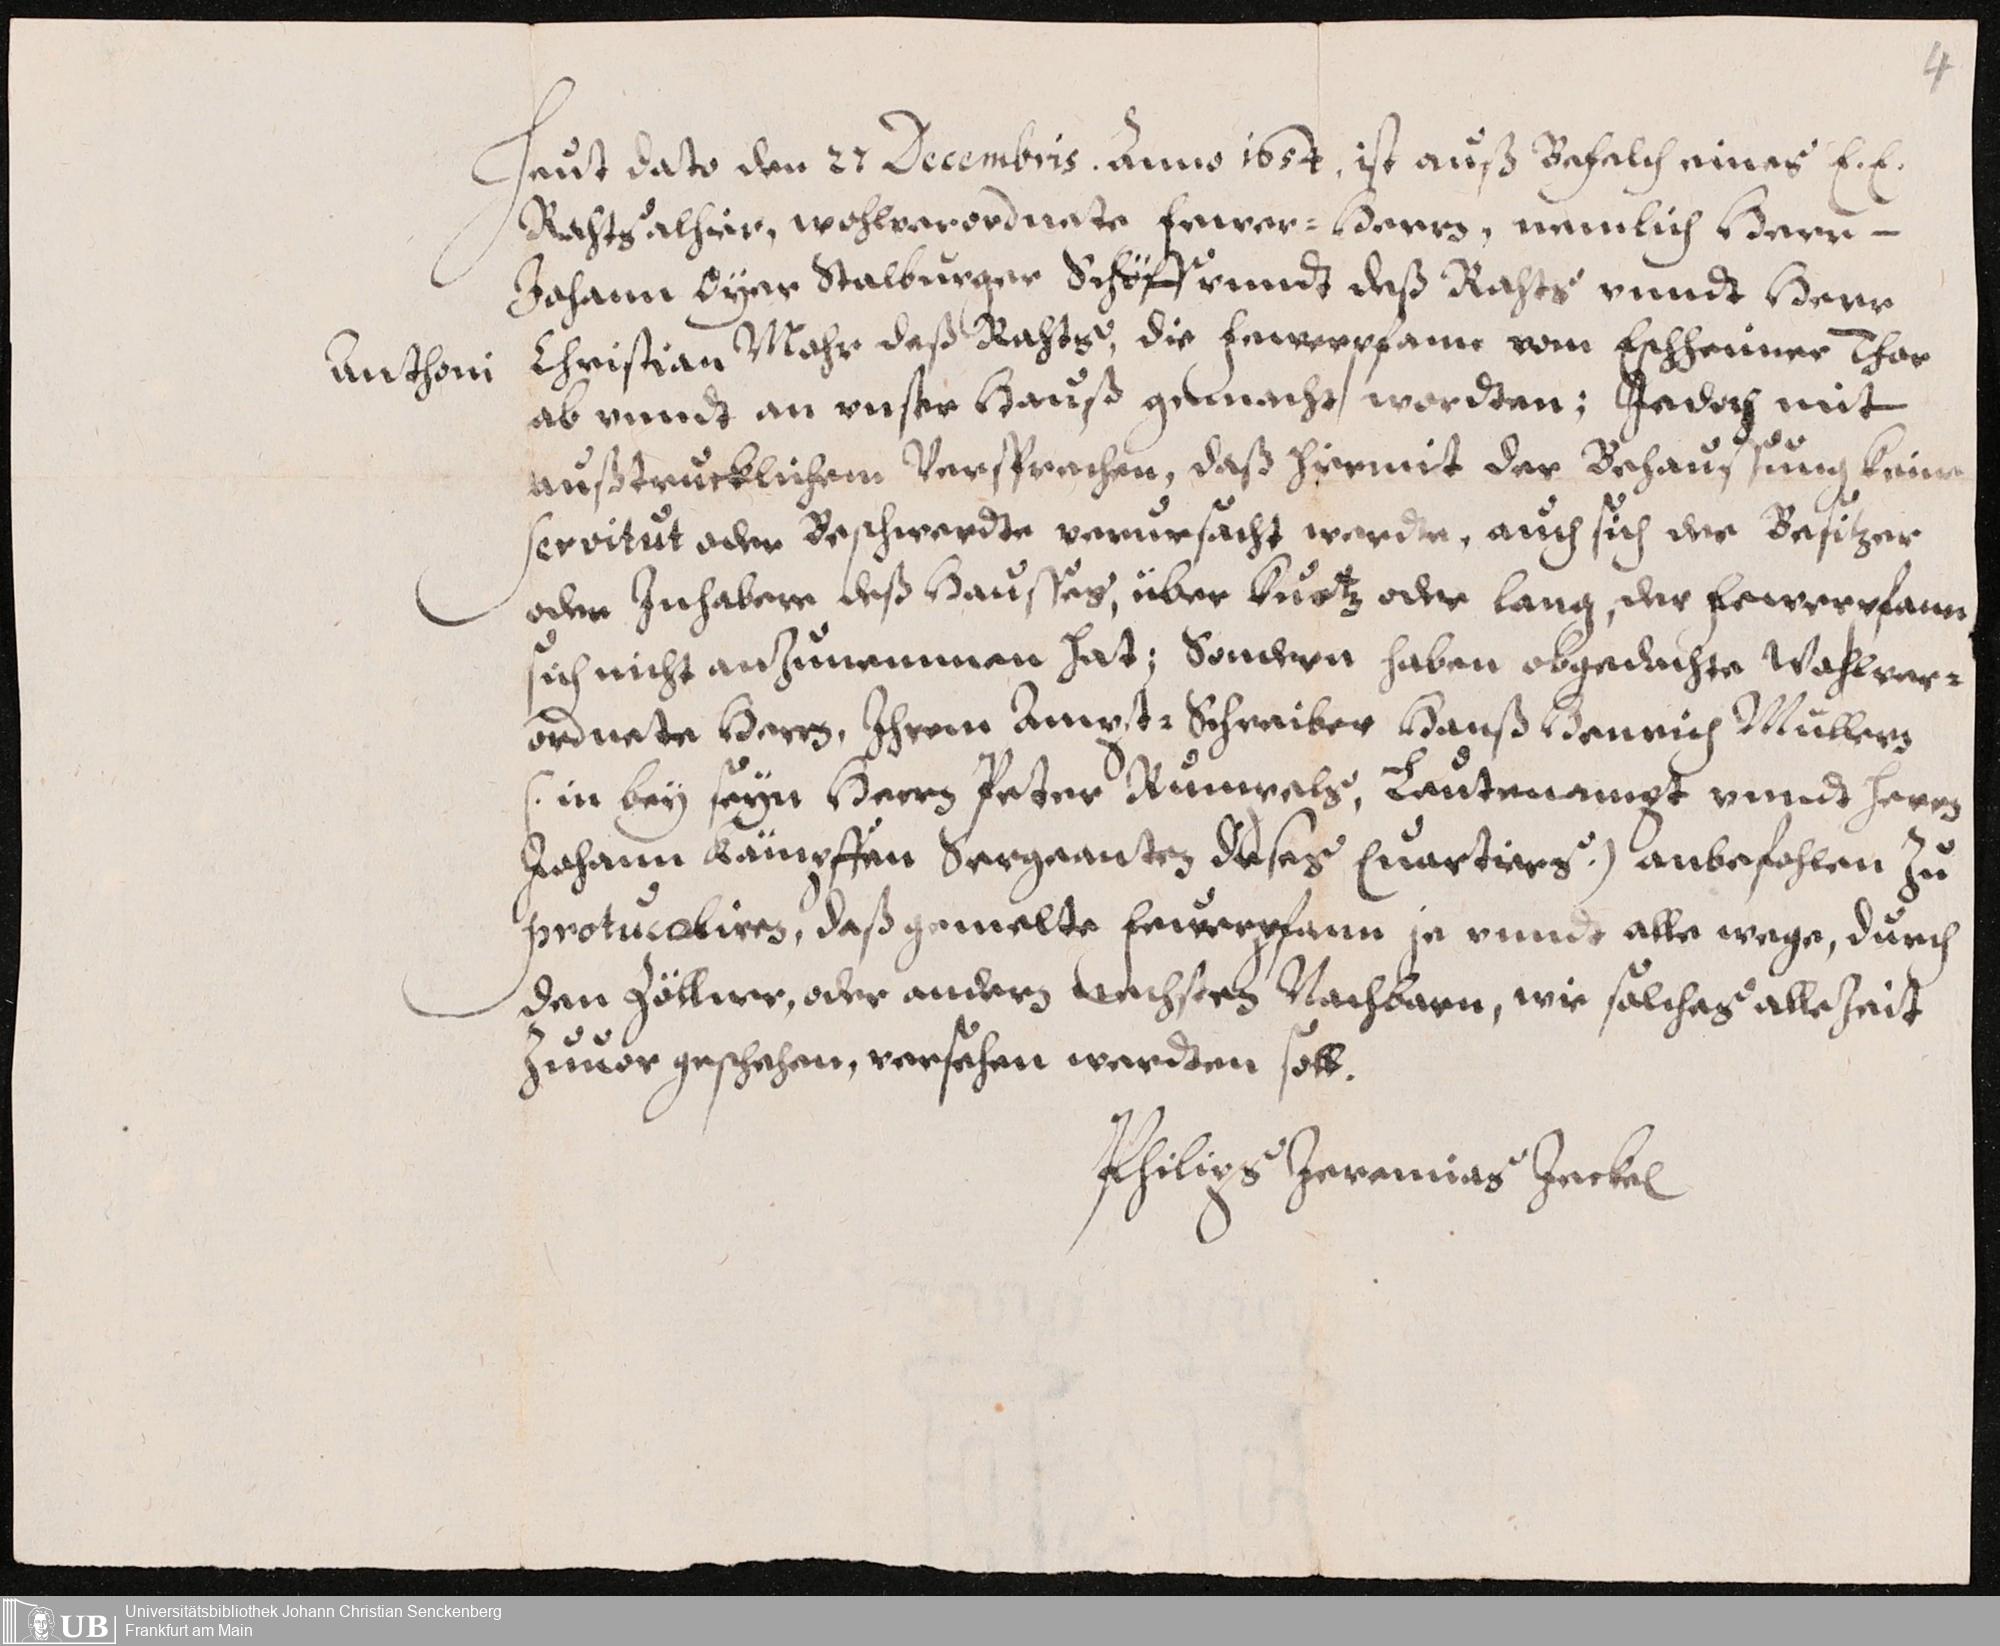 4
Heut dato den 27 Decembris. Anno 1654, ist auß Befelch eines E. E.
Rahts alhier, wohlverordnete Fewer= Herrn, nemlich Herr –
Johann Oyer Stalburger Schöff vnndt deß Rahts vnndt Herr
Anthoni Christian Mohr deß Rahts, die Fewerpfann vom Eschheimer Thor
ab vnndt an vnser Hauß gemacht wordten; Jedoch mit
außtrucklichem Versprechen, daß hiermit der Behaussung keine
servitut oder Beschwerdte verursacht werdte, auch sich der Besitzer
oder Inhabere deß Hausses, über kurtz oder lang, der Fewerpfann
sich nicht anzunemmen hat; Sondern haben obgedachte Wohlver=
ordnete Herrn, Ihrem Ampt= Schreiber Hanß Henrich Mullern
(. in bey seyn Herrn Peter Rumpels, Leutenampt vnndt Herrn
Johann Kämpffen Sergeanten dieses Quartiers.) anbefohlen zu
protucoliren, daß gemelte Fewerpfann je vnndt alle wege, durch
den Zöllner, oder andern nechsten Nachbarn, wie solches alle Zeit
Zuuor geschehen, versehen werdten soll.
Philips Jeremias Jeckel
UB
Universitätsbibliothek Johann Christian Senckenberg
Frankfurt am Main